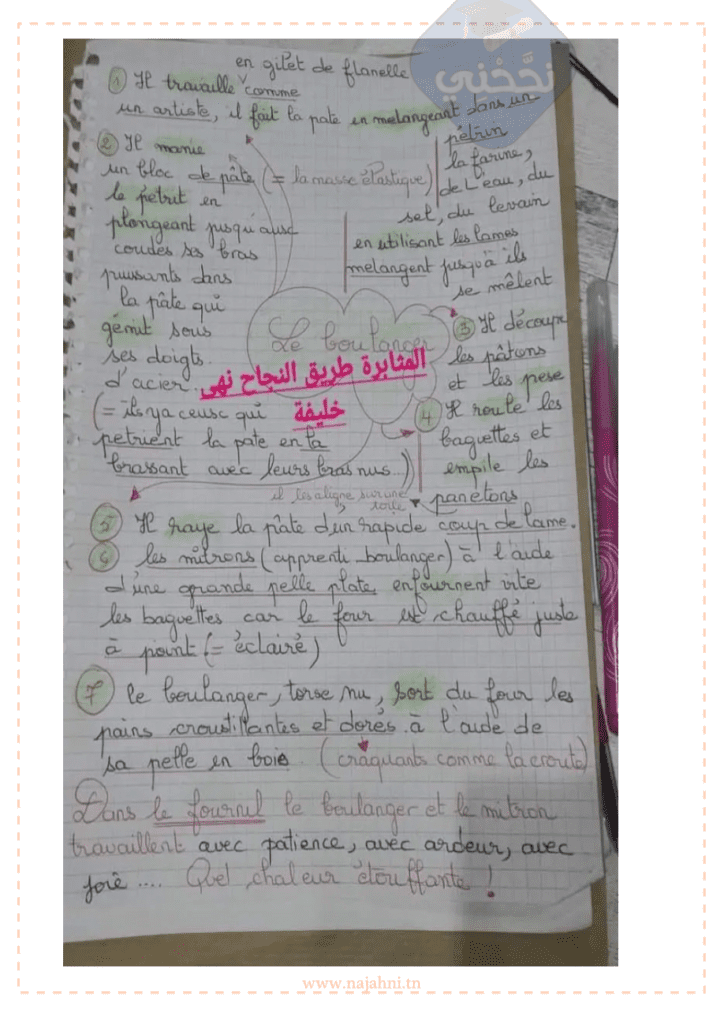 نجّحني
en gilet de flanelle
① Il travaille comme
un artiste, il fait la pate en melangeant dans un
pétrin
la farine,
de l'eau, du
sel, du levain
en utilisant les lames
melangent jusqu'à ils
se mêlent
② Il manie
un bloc de pâte (= la masse élastique)
le pétrit en
plongeant jusqu'aux
coudes ses bras
puissants dans
la pâte qui
gémit sous
ses doigts
d'acier.
(= ils ya ceux qui
petrient la pate en la
brassant avec leurs bras nus...)
Le boulanger
المثابرة طريق النجاح نهى
خليفة
③ Il découpe
les pâtons
et les pese
④ Il roule les
baguettes et
empile les
panetons
il les aligne sur une
toile
⑤ Il raye la pâte d'un rapide coup de lame.
⑥ les mitrons (apprenti boulanger) à l'aide
d'une grande pelle plate enfournent vite
les baguettes car le four est chauffé juste
à point (= éclairé)
⑦ le boulanger, torse nu, sort du four les
pains croustillantes et dorés à l'aide de
sa pelle en bois. (craquants comme la croute)
Dans le fournil le boulanger et le mitron
travaillent avec patience, avec ardeur, avec
joie .... Quel chaleur étouffante !
www.najahni.tn